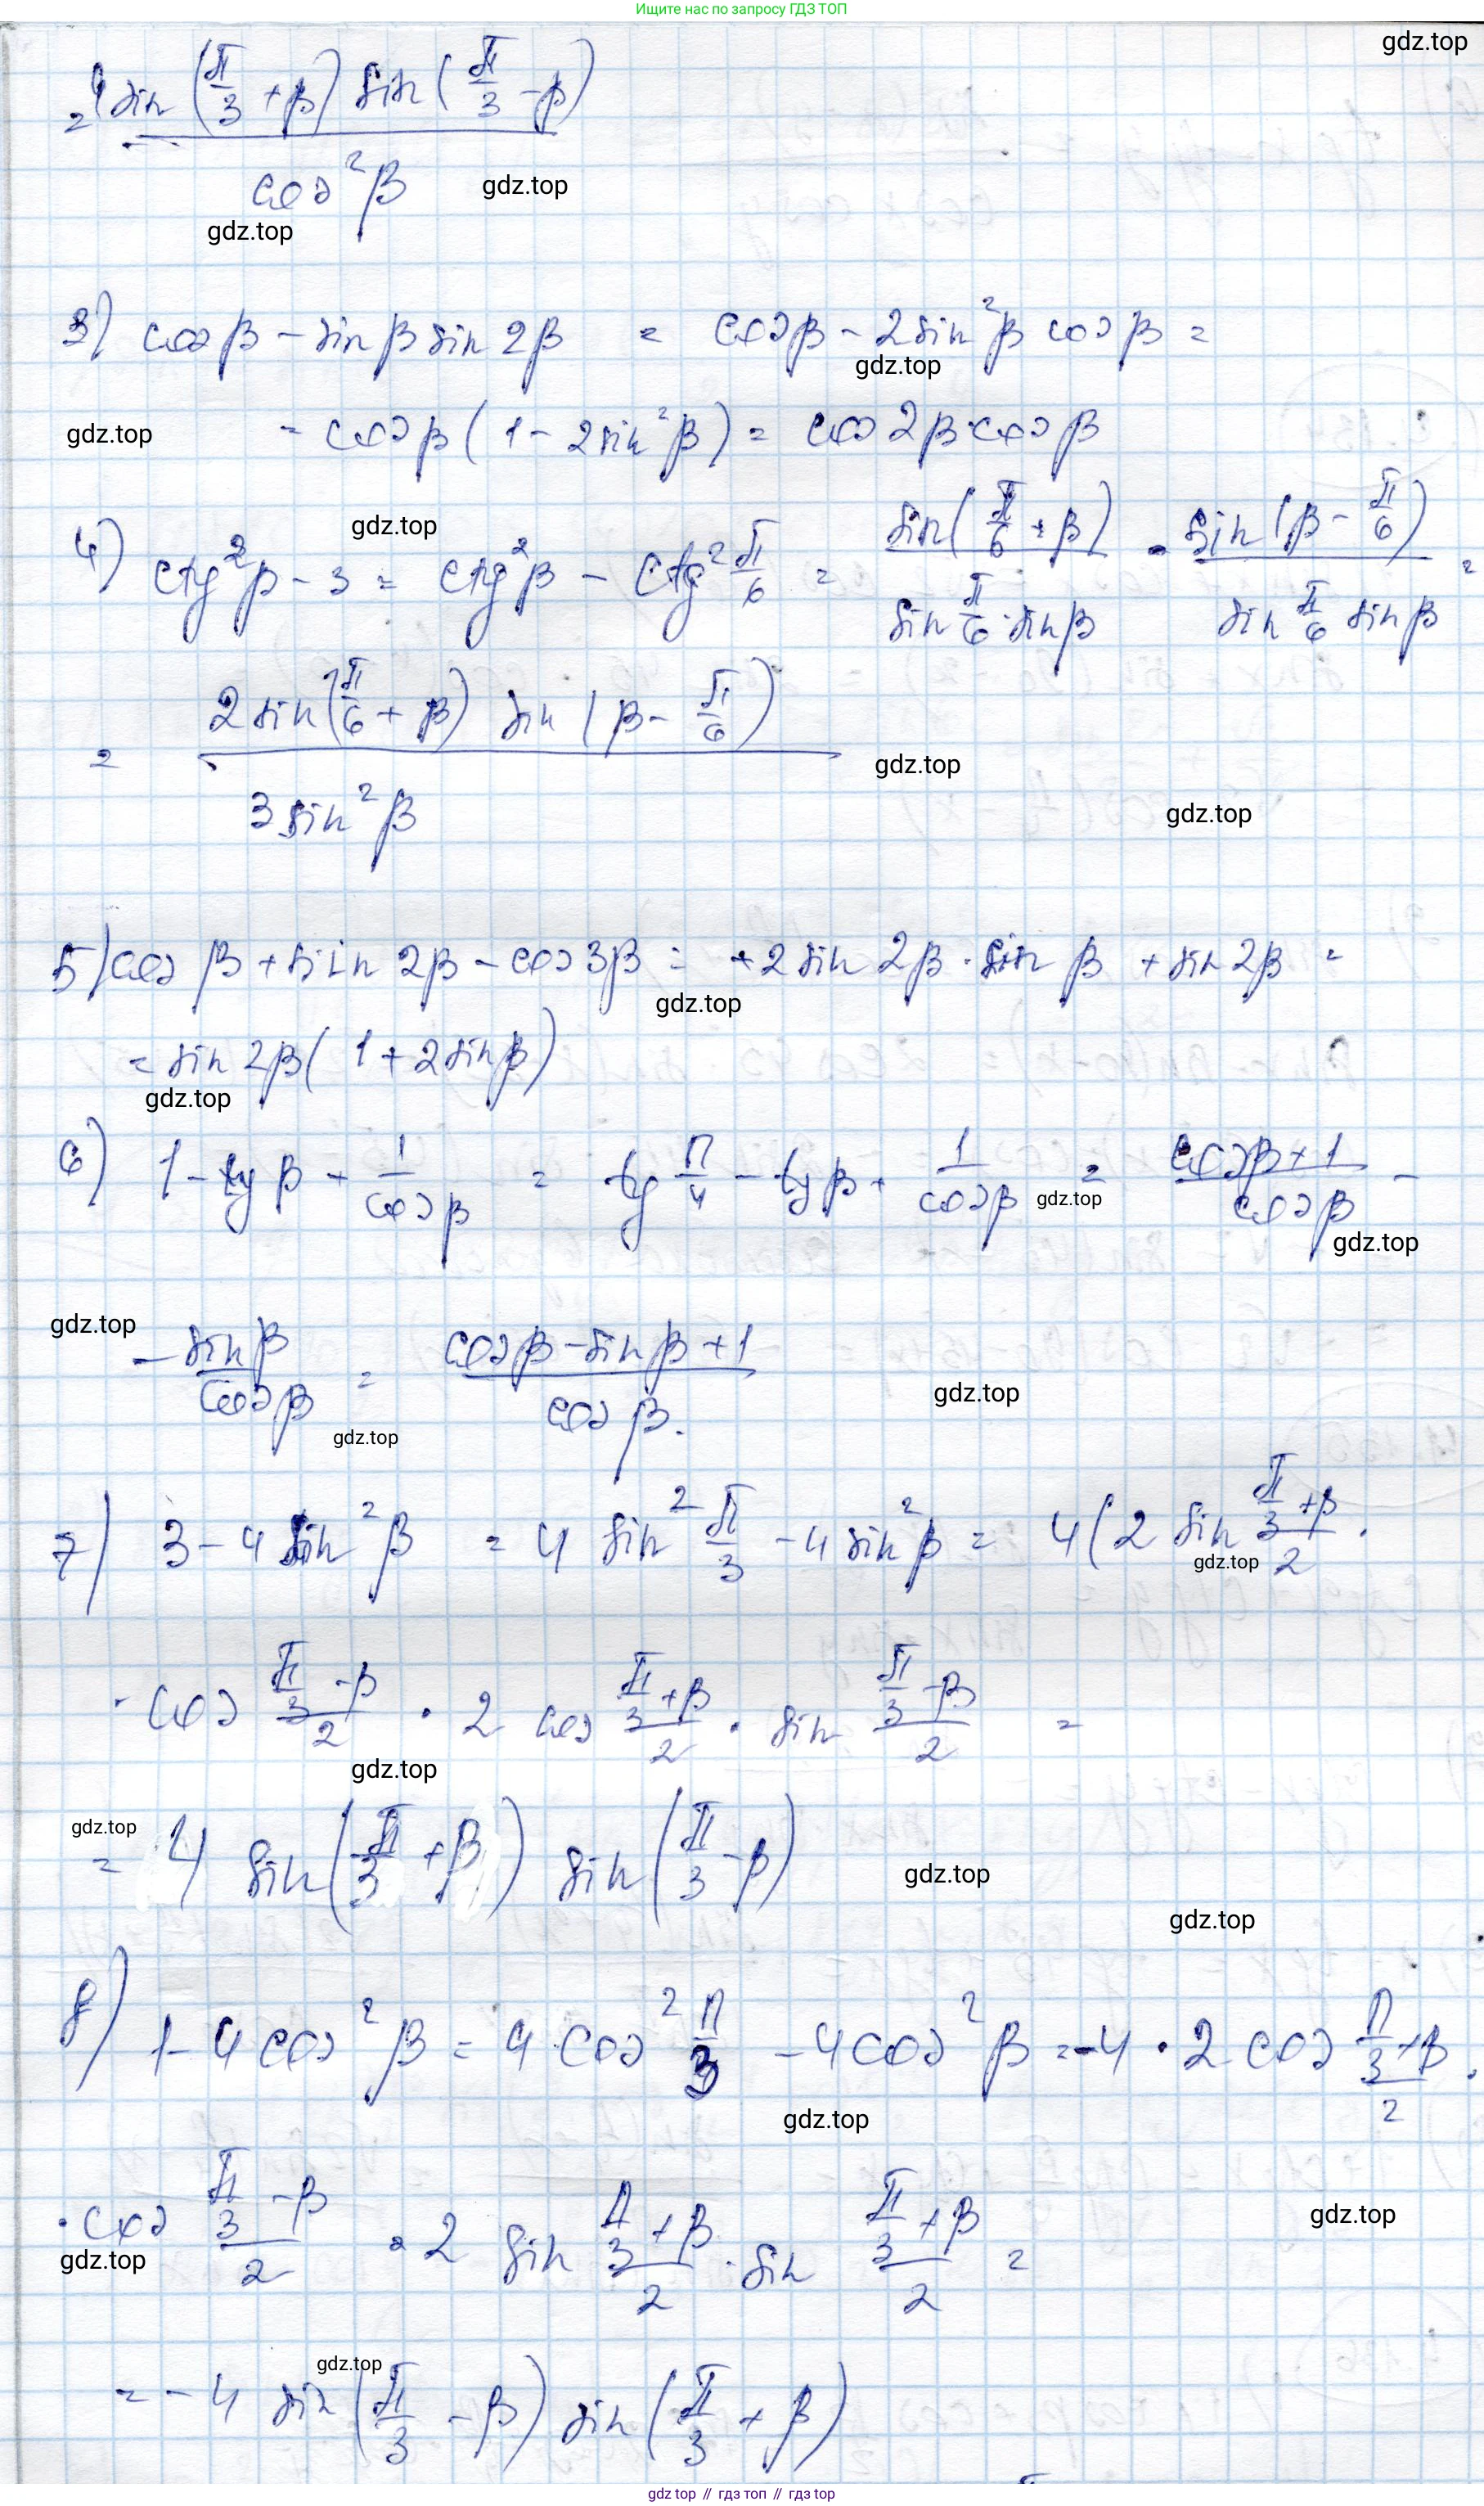 Ищите нас по запросу ГДЗ ТОП
gdz.top
= 4 sin (π/3 + β) sin (π/3 - β) / cos²β
gdz.top
gdz.top
3) cos β - sin β sin 2β = cos β - 2 sin²β cos β =
gdz.top
gdz.top
= cos β (1 - 2 sin²β) = cos 2β · cos β
gdz.top
4) ctg²β - 3 = ctg²β - ctg² π/6 = sin(π/6 + β) / sin π/6 · sin β · sin(β - π/6) / sin π/6 sin β =
= 2 sin(π/6 + β) sin (β - π/6) / 3 sin²β
gdz.top
gdz.top
5) cos β + sin 2β - cos 3β = +2 sin 2β · sin β + sin 2β =
gdz.top
= sin 2β (1 + 2 sin β)
gdz.top
6) 1 - tg β + 1/cos β = tg π/4 - tg β + 1/cos β = cos β + 1 / cos β -
gdz.top
gdz.top
gdz.top
- sin β / cos β = cos β - sin β + 1 / cos β.
gdz.top
gdz.top
7) 3 - 4 sin²β = 4 sin² π/3 - 4 sin²β = 4 (2 sin (π/3 + β)/2 ·
gdz.top
· cos (π/3 - β)/2 · 2 cos (π/3 + β)/2 · sin (π/3 - β)/2 =
gdz.top
gdz.top
= 4 sin (π/3 + β) sin (π/3 - β)
gdz.top
gdz.top
8) 1 - 4 cos²β = 4 · cos² π/3 - 4 cos²β = -4 · 2 cos (π/3 + β)/2 ·
gdz.top
· cos (π/3 - β)/2 · 2 sin (π/3 + β)/2 · sin (π/3 + β)/2 =
gdz.top
gdz.top
gdz.top
= - 4 sin (π/3 - β) sin (π/3 + β)
gdz.top // гдз топ // гдз top